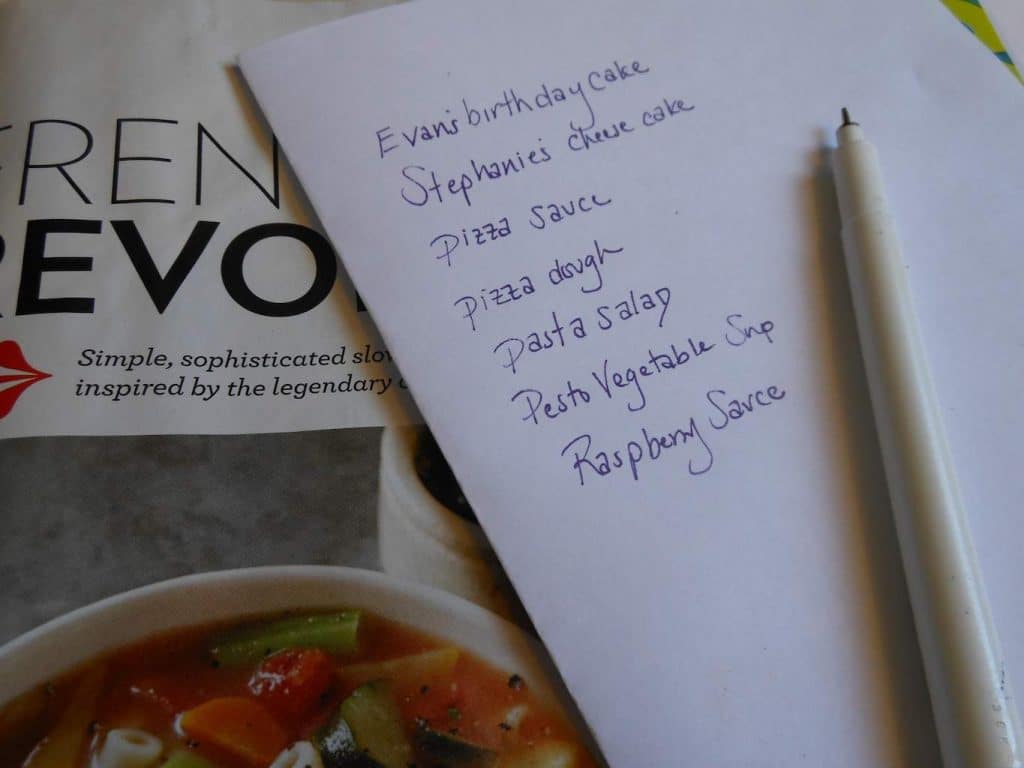 FREN
REVO
Simple, sophisticated slo
inspired by the legendary
Evan's birthday cake
Stephanie's cheese cake
Pizza sauce
Pizza dough
Pasta salad
Pesto Vegetable Soup
Raspberry Sauce